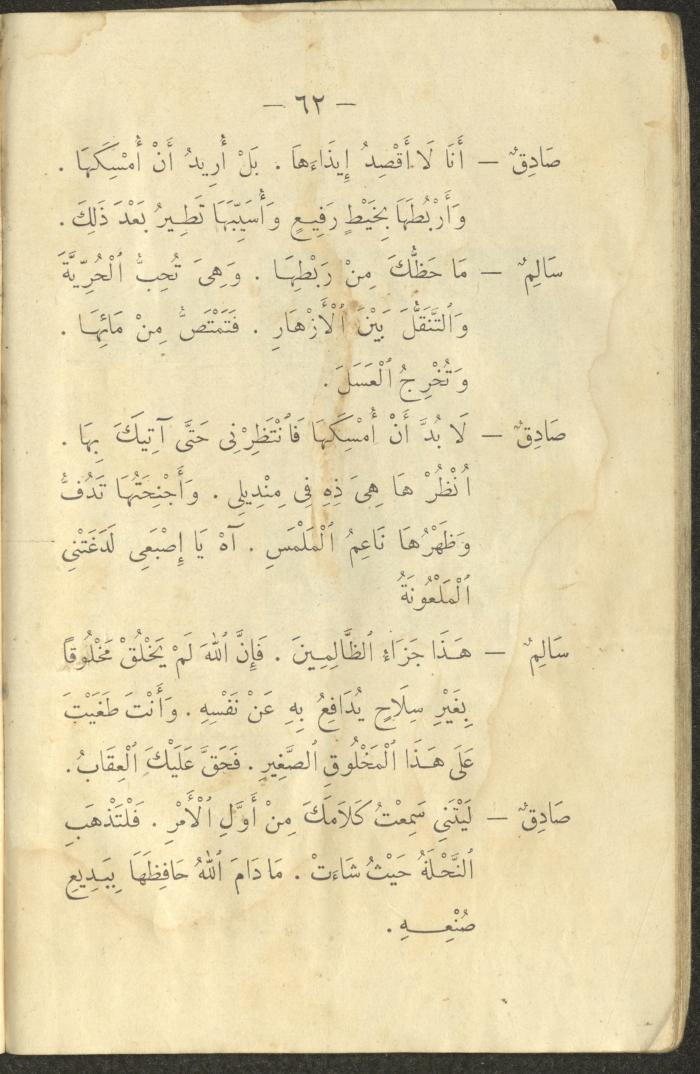 — ٦٢ —
صَادِقٌ — أَنَا لَا أَقْصِدُ إِيذَاءَهَا . بَلْ أُرِيدُ أَنْ أُمْسِكَهَا .
وَأَرْبُطَهَا بِخَيْطٍ رَفِيعٍ وَأُسَيِّبَهَا تَطِيرُ بَعْدَ ذَلِكَ .
سَالِمٌ — مَا حَظُّكَ مِنْ رَبْطِهَا . وَهِىَ تُحِبُّ ٱلْحُرِّيَّةَ
وَٱلتَّنَقُّلَ بَيْنَ ٱلْأَزْهَارِ . فَتَمْتَصُّ مِنْ مَائِهَا .
وَتُخْرِجُ ٱلْعَسَلَ .
صَادِقٌ — لَا بُدَّ أَنْ أُمْسِكَهَا فَٱنْتَظِرْنِى حَتَّى آتِيَكَ بِهَا .
اُنْظُرْ هَا هِىَ ذِهِ فِى مِنْدِيلِى . وَأَجْنِحَتُهَا تَدُفُّ
وَظَهْرُهَا نَاعِمُ ٱلْمَلْمَسِ . آهْ يَا إِصْبَعِى لَدَغَتْنِى
ٱلْمَلْعُونَةُ
سَالِمٌ — هَذَا جَزَاءُ ٱلظَّالِمِينَ . فَإِنَّ ٱللهَ لَمْ يَخْلُقْ مَخْلُوقاً
بِغَيْرِ سِلَاحٍ يُدَافِعُ بِهِ عَنْ نَفْسِهِ . وَأَنْتَ طَغَيْتَ
عَلَى هَذَا ٱلْمَخْلُوقِ ٱلصَّغِيرِ . فَحَقَّ عَلَيْكَ ٱلْعِقَابُ .
صَادِقٌ — لَيْتَنِى سَمِعْتُ كَلَامَكَ مِنْ أَوَّلِ ٱلْأَمْرِ . فَلْتَذْهَبِ
ٱلنَّحْلَةُ حَيْثُ شَاءَتْ . مَا دَامَ ٱللهُ حَافِظَهَا بِبَدِيعِ
صُنْعِهِ .